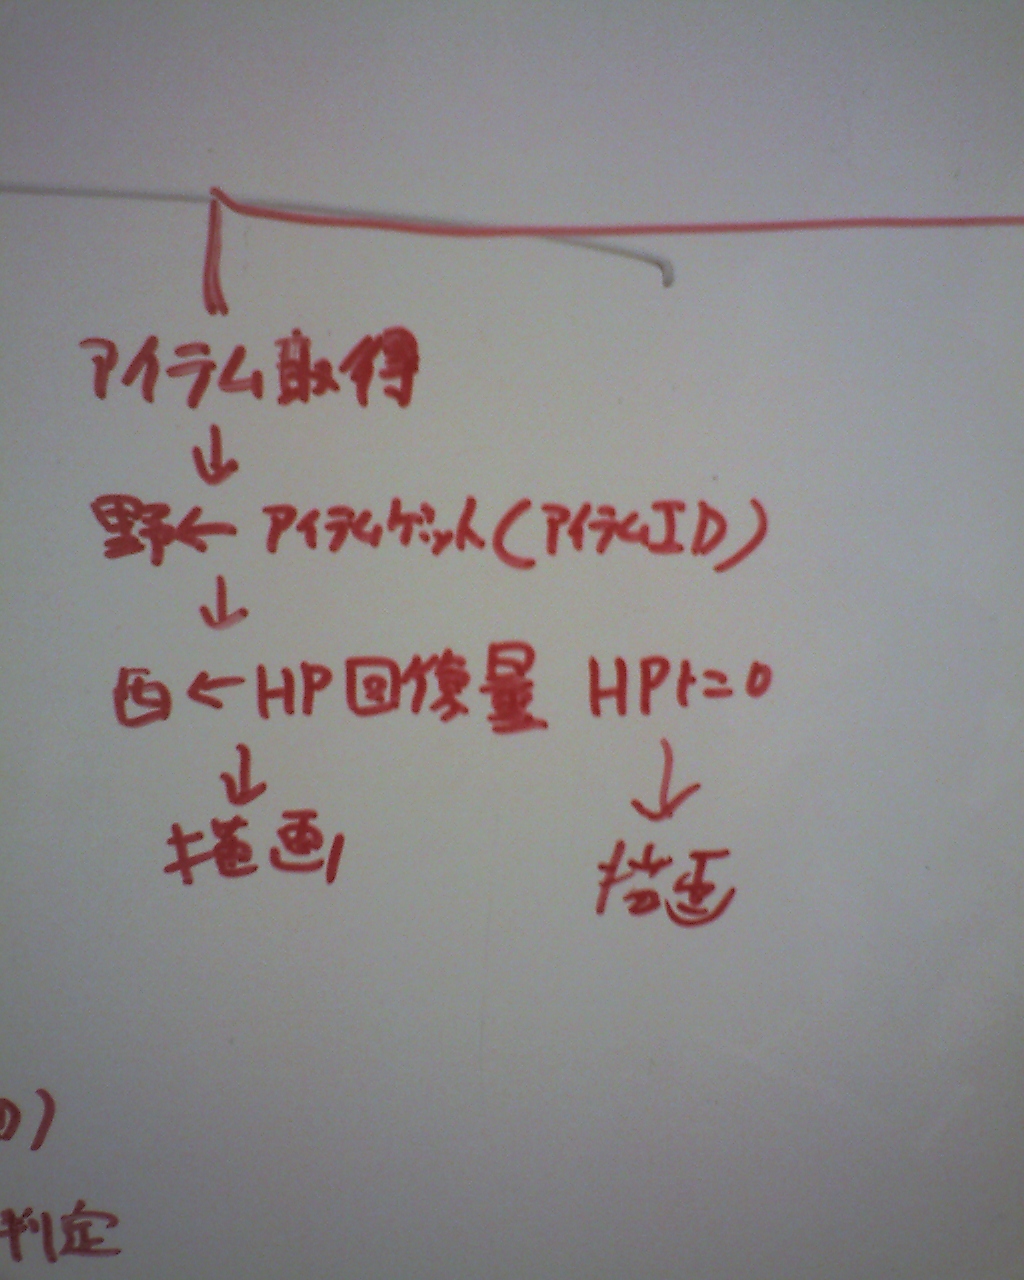 アイテム取得
↓
野← アイテムゲット(アイテムID)
↓
西←HP回復量 HP+=0
↓ ↓
描画 描画
)
判定